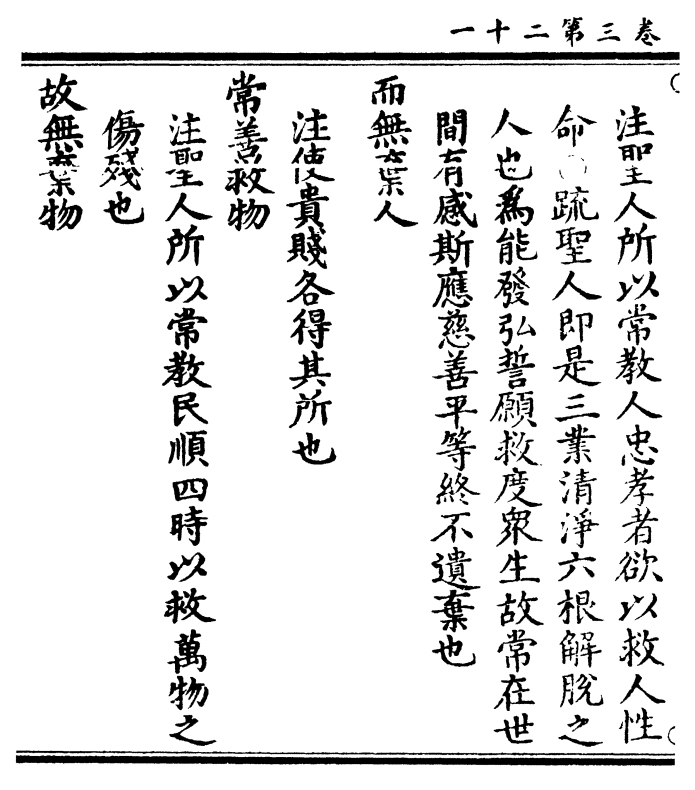 卷三第二十一
注聖人所以常教人忠孝者欲以救人性
命○疏聖人即是三業清淨六根解脫之
人也為能發弘誓願救度眾生故常在世
間有感斯應慈善平等終不遺棄也
而無棄人
注使貴賤各得其所也
常善救物
注聖人所以常教民順四時以救萬物之
傷殘也
故無棄物